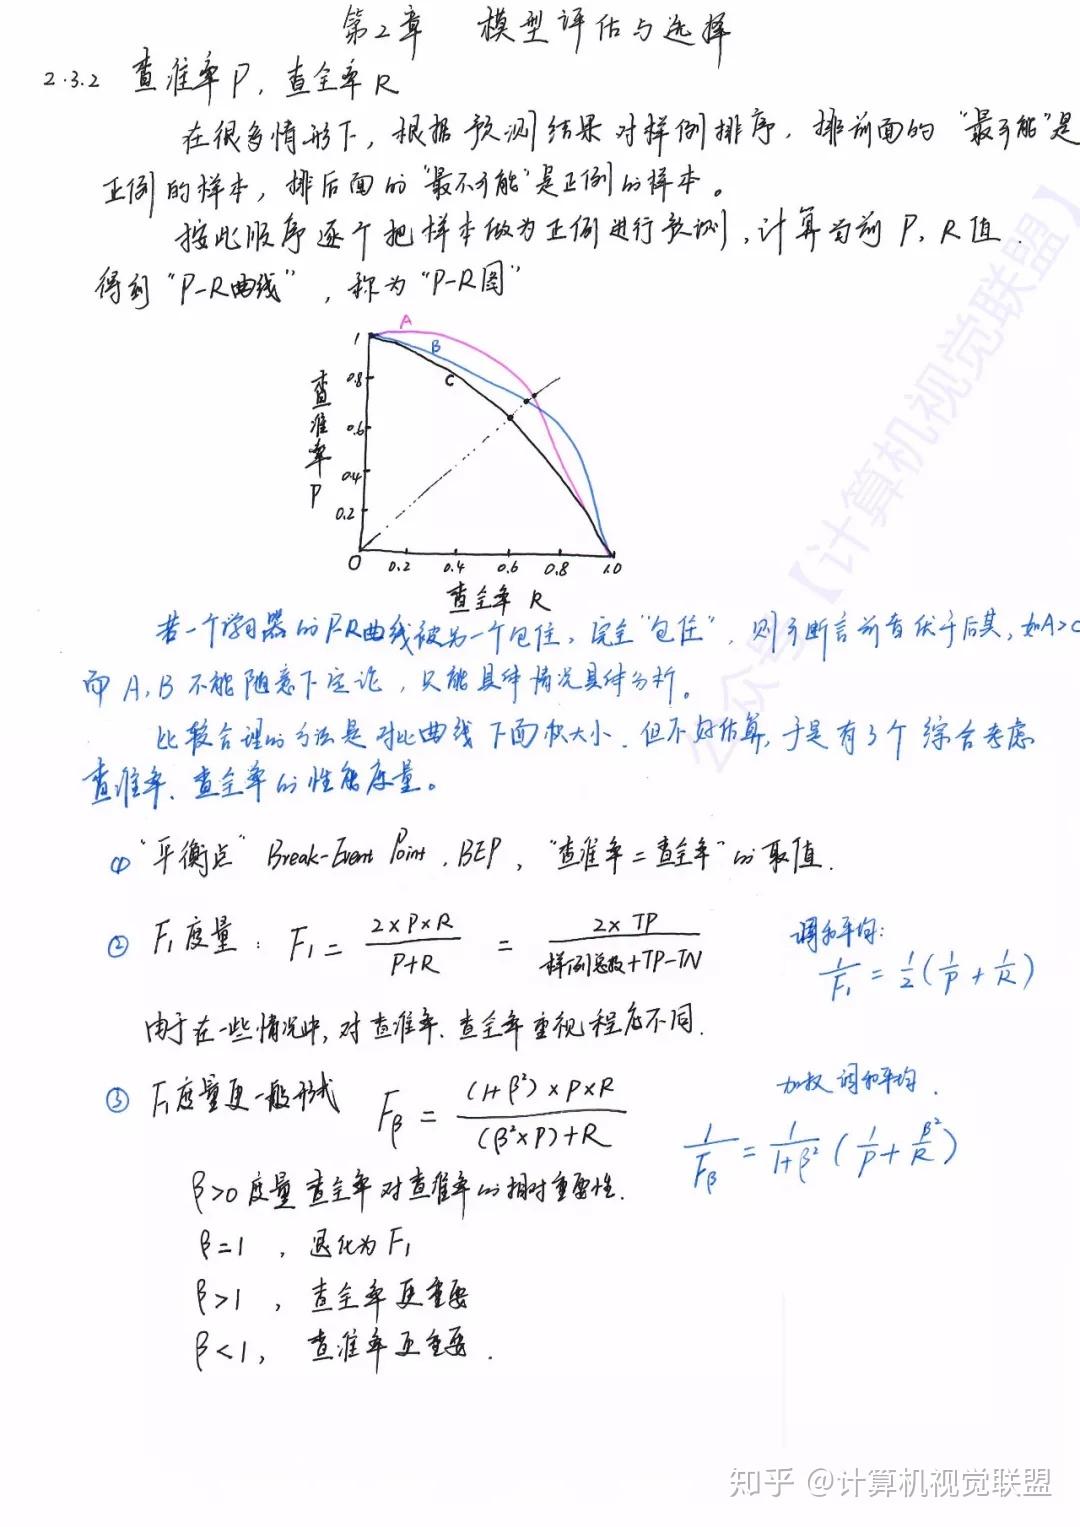 第2章 模型评估与选择
2.3.2 查准率P, 查全率R
在很多情形下, 根据预测结果对样例排序, 排前面的"最可能"是
正例的样本, 排后面的"最不可能"是正例的样本。
按此顺序逐个把样本做为正例进行预测, 计算当前 P, R值.
得到"P-R曲线", 称为"P-R图"
A
B
C
1
0.8
0.6
0.4
0.2
查准率P
O 0.2 0.4 0.6 0.8 1.0
查全率 R
若一个学习器的P-R曲线被另一个包住, 完全"包住", 则可断言前者优于后者, 如A>C
而 A, B 不能随意下定论, 只能具体情况具体分析。
比较合理的方法是对比曲线下面积大小. 但不好估算, 于是有3个综合考虑
查准率、查全率的性能度量。
① "平衡点" Break-Event Point, BEP, "查准率=查全率"的取值.
② F₁度量: F₁ = (2×P×R)/(P+R) = (2×TP)/(样例总数+TP-TN)
调和平均:
1/F₁ = 1/2(1/P + 1/R)
由于在一些情况中, 对查准率、查全率重视程度不同.
③ F₁度量更一般形式 Fβ = ((1+β²)×P×R)/((β²×P)+R)
加权调和平均.
1/Fβ = 1/(1+β²)(1/P + β²/R)
β>0 度量查全率对查准率的相对重要性.
β=1, 退化为F₁
β>1, 查全率更重要
β<1, 查准率更重要.
公众号【计算机视觉联盟】
知乎 @计算机视觉联盟